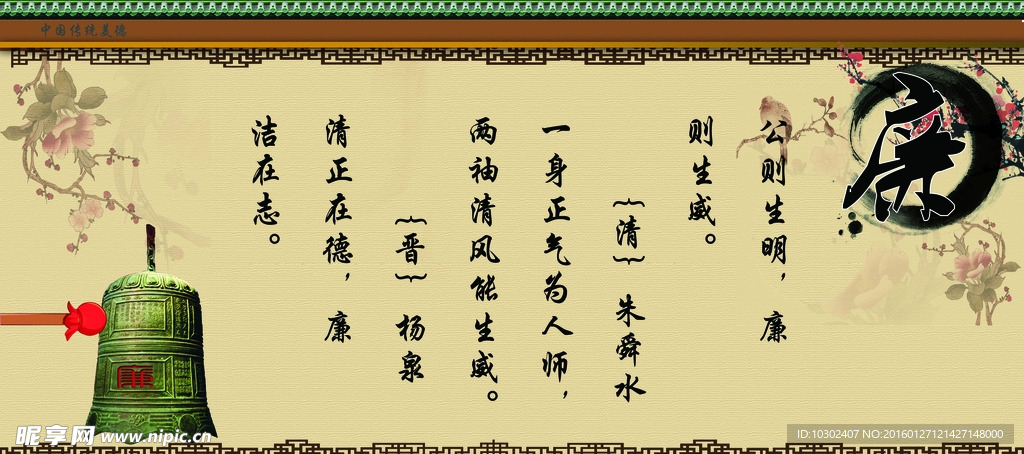 中国传统美德
廉
公则生明，廉
则生威。
{清} 朱舜水
一身正气为人师，
两袖清风能生威。
{晋} 杨泉
清正在德，廉
洁在志。
廉
昵享网 www.nipic.cn
ID:10302407 NO:20160127121427148000